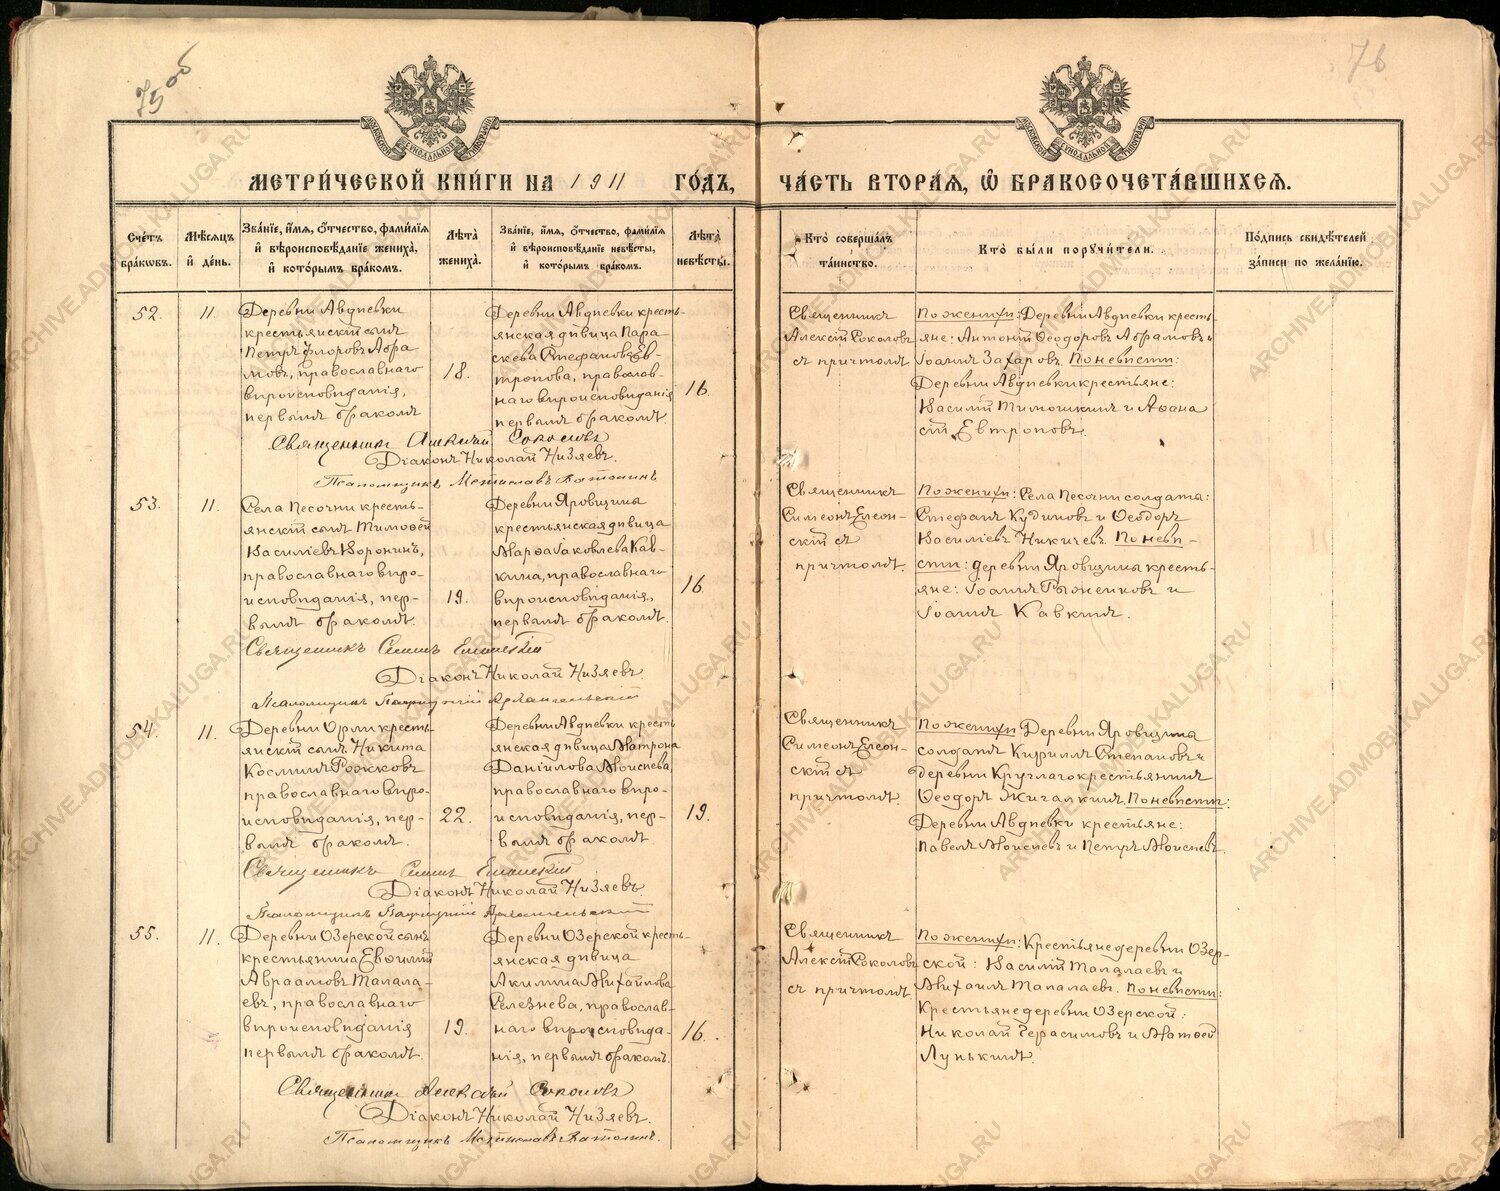 75 об
76
МЕТРИ́ЧЕСКОЙ КНИ́ГИ НА 1911 ГО́ДЪ, ЧА́СТЬ ВТОРА́Я, Ѡ БРАКОСОЧЕТА́ВШИХСЯ.
Сче́тъ бра́кωвъ.
Мѣ́сяцъ и де́нь.
Зва́нїе, и́мя, ѻ́тчество, фами́лїя и вѣроисповѣ́данїе жениха̀, и кото́рымъ бра́комъ.
Лѣ́та жениха̀.
Зва́нїе, и́мя, ѻ́тчество, фами́лїя и вѣроисповѣ́данїе невѣ́сты, и кото́рымъ бра́комъ.
Лѣ́та невѣ́сты.
Кто̀ соверша́лъ та́инство.
Кто̀ бы́ли поручи́тели.
По́дпись свидѣ́телей за́писи по жела́нїю.
52.
11.
Деревни Авдѣевки
крестьянскій сынъ
Петръ Флоровъ Абра
мовъ, православнаго
вѣроисповѣданія,
первымъ бракомъ
18.
Деревни Авдѣевки кресть-
янская дѣвица Пара
скева Стефанова Ев-
тропова, православ-
наго вѣроисповѣданія
первымъ бракомъ.
16.
Священникъ
Алексій Соколовъ
съ причтомъ
По женихѣ: Деревни Авдѣевки кресть-
яне: Антоній Ѳеодоровъ Абрамовъ и
Іоаннъ Захаровъ По невѣсти:
Деревни Авдѣевки крестьяне:
Василій Тимошкинъ и Аѳана
сій Евтроповъ.
Священникъ Алексій Соколовъ
Діаконъ Николай Низяевъ.
Псаломщикъ Мстиславъ Католинъ
53.
11.
Села Песочни кресть-
янскій сынъ Тимоѳей
Василіевъ Воронинъ,
православнаго вѣро-
исповѣданія, пер-
вымъ бракомъ.
19.
Деревни Яровщины
крестьянская дѣвица
Марѳа Іаковлева Кав-
кина, православнаго
вѣроисповѣданія,
первымъ бракомъ.
16.
Священникъ
Симеонъ Елеон-
скій съ
причтомъ.
По женихѣ: Села Песочни солдата:
Стефанъ Кудиновъ и Ѳеодоръ
Василіевъ Никичевъ По невѣ-
сти: деревни Яровщины кресть-
яне: Іоаннъ Рыженковъ и
Іоаннъ Кавкинъ.
Священникъ Симеонъ Елеонскій
Діаконъ Николай Низяевъ.
Псаломщикъ Архангельскій
54.
11.
Деревни Орли кресть-
янскій сынъ Никита
Космины Рожковъ
православнаго вѣро-
исповѣданія, пер-
вымъ бракомъ.
22.
Деревни Авдѣевки кресть
янская дѣвица Матрона
Даніилова Моисеева
православнаго вѣро-
исповѣданія, пер-
вымъ бракомъ
19.
Священникъ
Симеонъ Елеон-
скій съ
причтомъ.
По женихѣ Деревни Яровщина
солдатъ Кириллъ Степановъ и
деревни Круглаго крестьянинъ
Ѳеодоръ Жигалкинъ. По невѣсти:
Деревни Авдѣевки крестьяне:
Павелъ Моисеевъ и Петръ Моисеевъ.
Священникъ Симеонъ Елеонскій
Діаконъ Николай Низяевъ.
Псаломщикъ Архангельскій
55.
11.
Деревни Озерской сынъ
крестьянина Евѳимій
Авраамовъ Талала-
евъ, православнаго
вѣроисповѣданія
первымъ бракомъ.
19.
Деревни Озерской кресть-
янская дѣвица
Акилина Михайлова
Селезнева, православ-
наго вѣроисповѣда-
нія, первымъ бракомъ.
16.
Священникъ
Алексій Соколовъ
съ причтомъ
По женихѣ: Крестьяне деревни Озер-
ской: Василій Талалаевъ и
Михаилъ Талалаевъ. По невѣсти:
Крестьяне деревни Озерской:
Николай Герасимовъ и Матѳей
Лунькинъ.
Священникъ Алексій Соколовъ
Діаконъ Николай Низяевъ.
Псаломщикъ Мстиславъ Католинъ.
ARCHIVE.ADMOBLKALUGA.RU